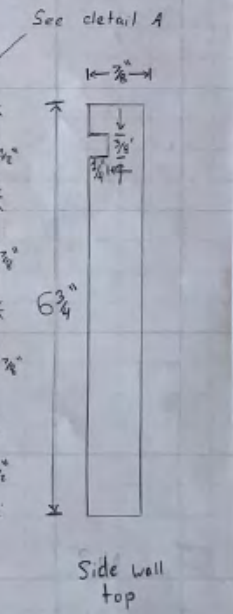 See detail A
7/8"
3/8"
1/4"
6 3/4"
7/8"
7/8"
Side wall
top